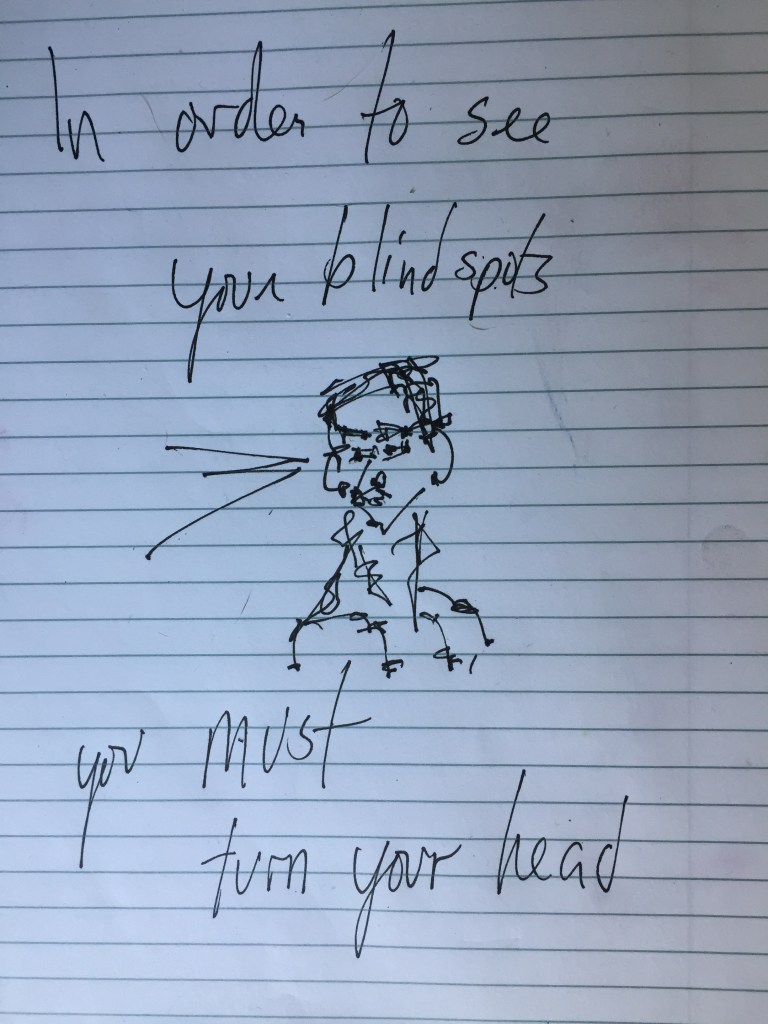 In order to see
your blind spots
you must
turn your head